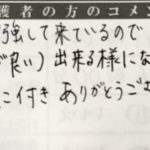 護者の方のコメン
強して来ているので
が良い)出来る様にな
に付き ありがとうご